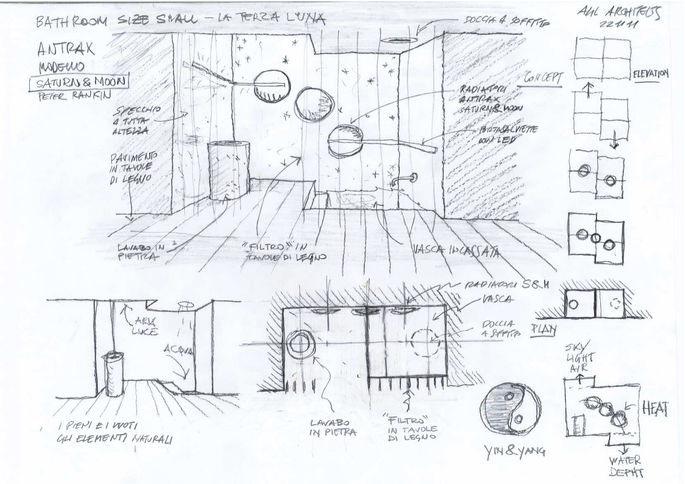 BATHROOM SIZE SMALL - LA TERRA LUNA
ANTRAX
MODELLO
SATURN & MOON
PETER RANKIN
SPECCHIO
A TUTTA
ALTEZZA
PAVIMENTO
IN TAVOLE
DI LEGNO
LAVABO IN
PIETRA
"FILTRO" IN
TAVOLE DI LEGNO
VASCA INCASSATA
DOCCIA A SOFFITTO
CONCEPT
RADIATORI
ANTRAX
SATURN & MOON
PORTASALVIETTE
CON LED
ARCHITECTS
22.11.11
ELEVATION
PLAN
ARIA
LUCE
ACQUA
I PIENI E I VUOTI
GLI ELEMENTI NATURALI
RADIATORI S&M
VASCA
DOCCIA
A SOFFITTO
LAVABO
IN PIETRA
"FILTRO"
IN TAVOLE
DI LEGNO
YIN & YANG
SKY
LIGHT
AIR
HEAT
WATER
DEPHT